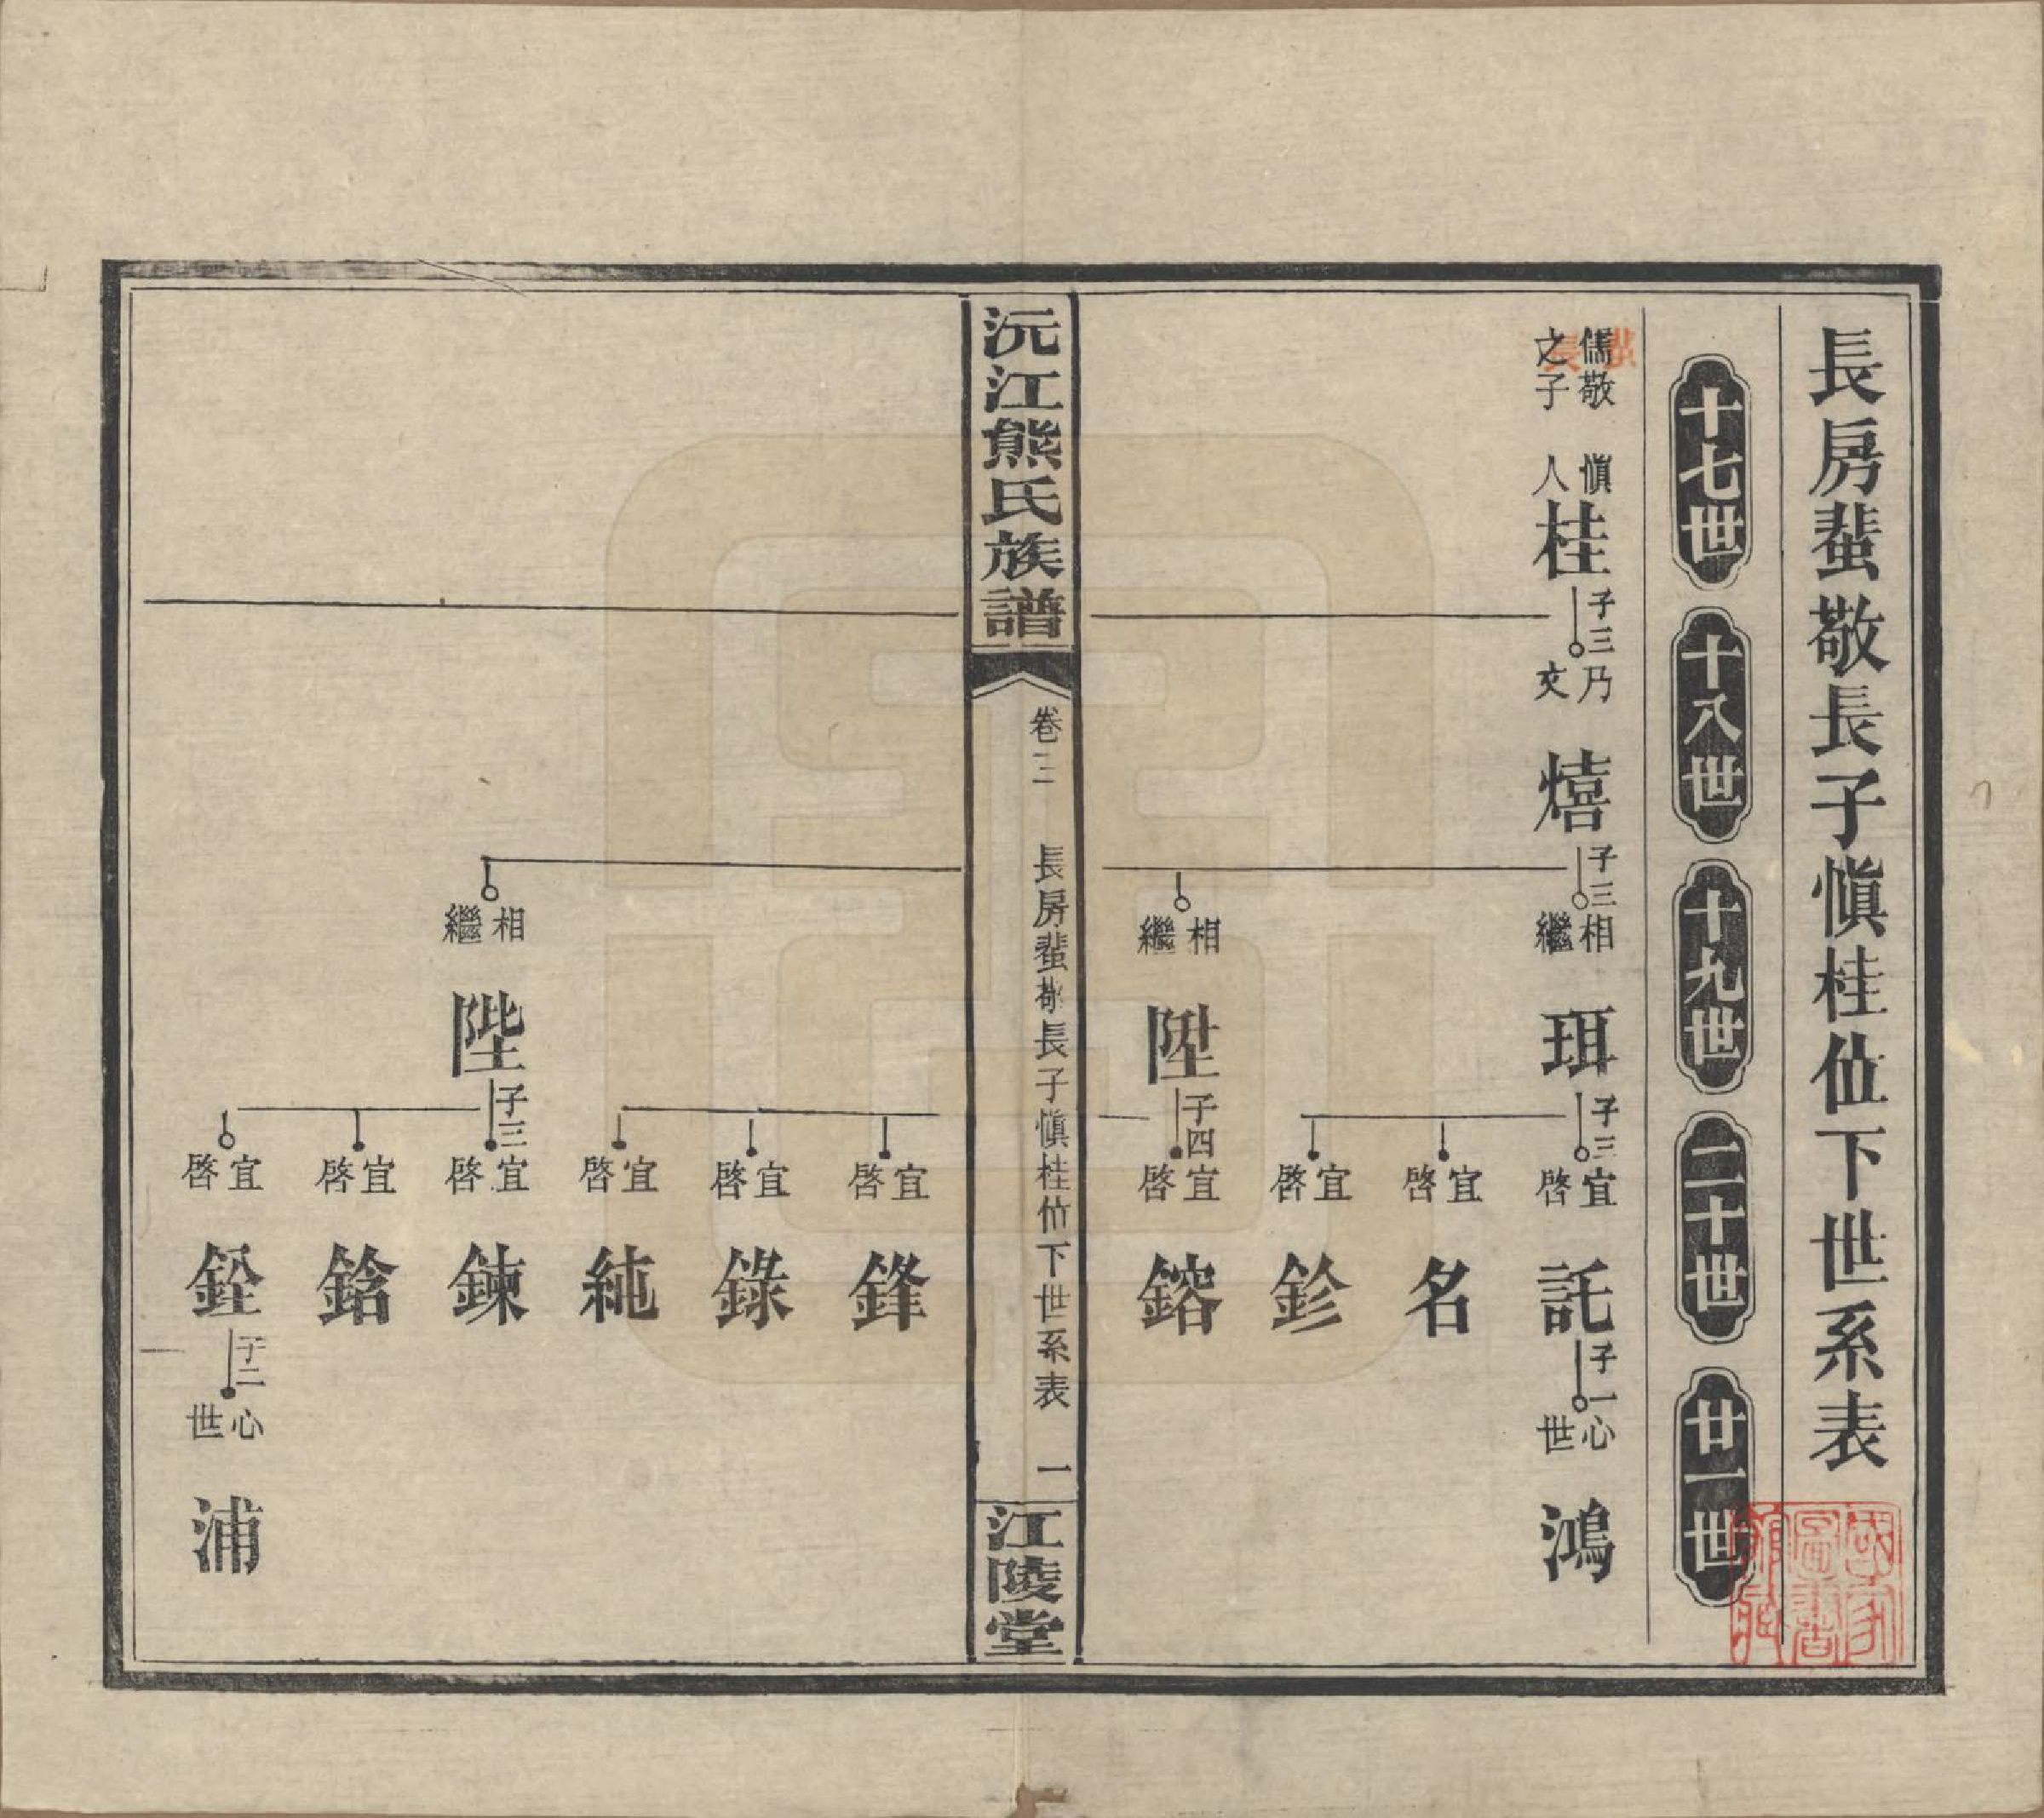 長房蜚敬長子愼桂位下世系表
十七世
十八世
十九世
二十世
廿一世
儒敬
之子
愼人
桂
子三
乃文
熺
子三
相繼
珥
子三
宜啓
託
子一
心世
鴻
宜啓
名
宜啓
鉁
相繼
陞
子四
宜啓
鎔
沅江熊氏族譜
卷三
長房蜚敬長子愼桂位下世系表
一
江陵堂
宜啓
鋒
宜啓
錄
宜啓
純
相繼
陛
子三
宜啓
鍊
宜啓
鋡
宜啓
銓
子二
心世
浦